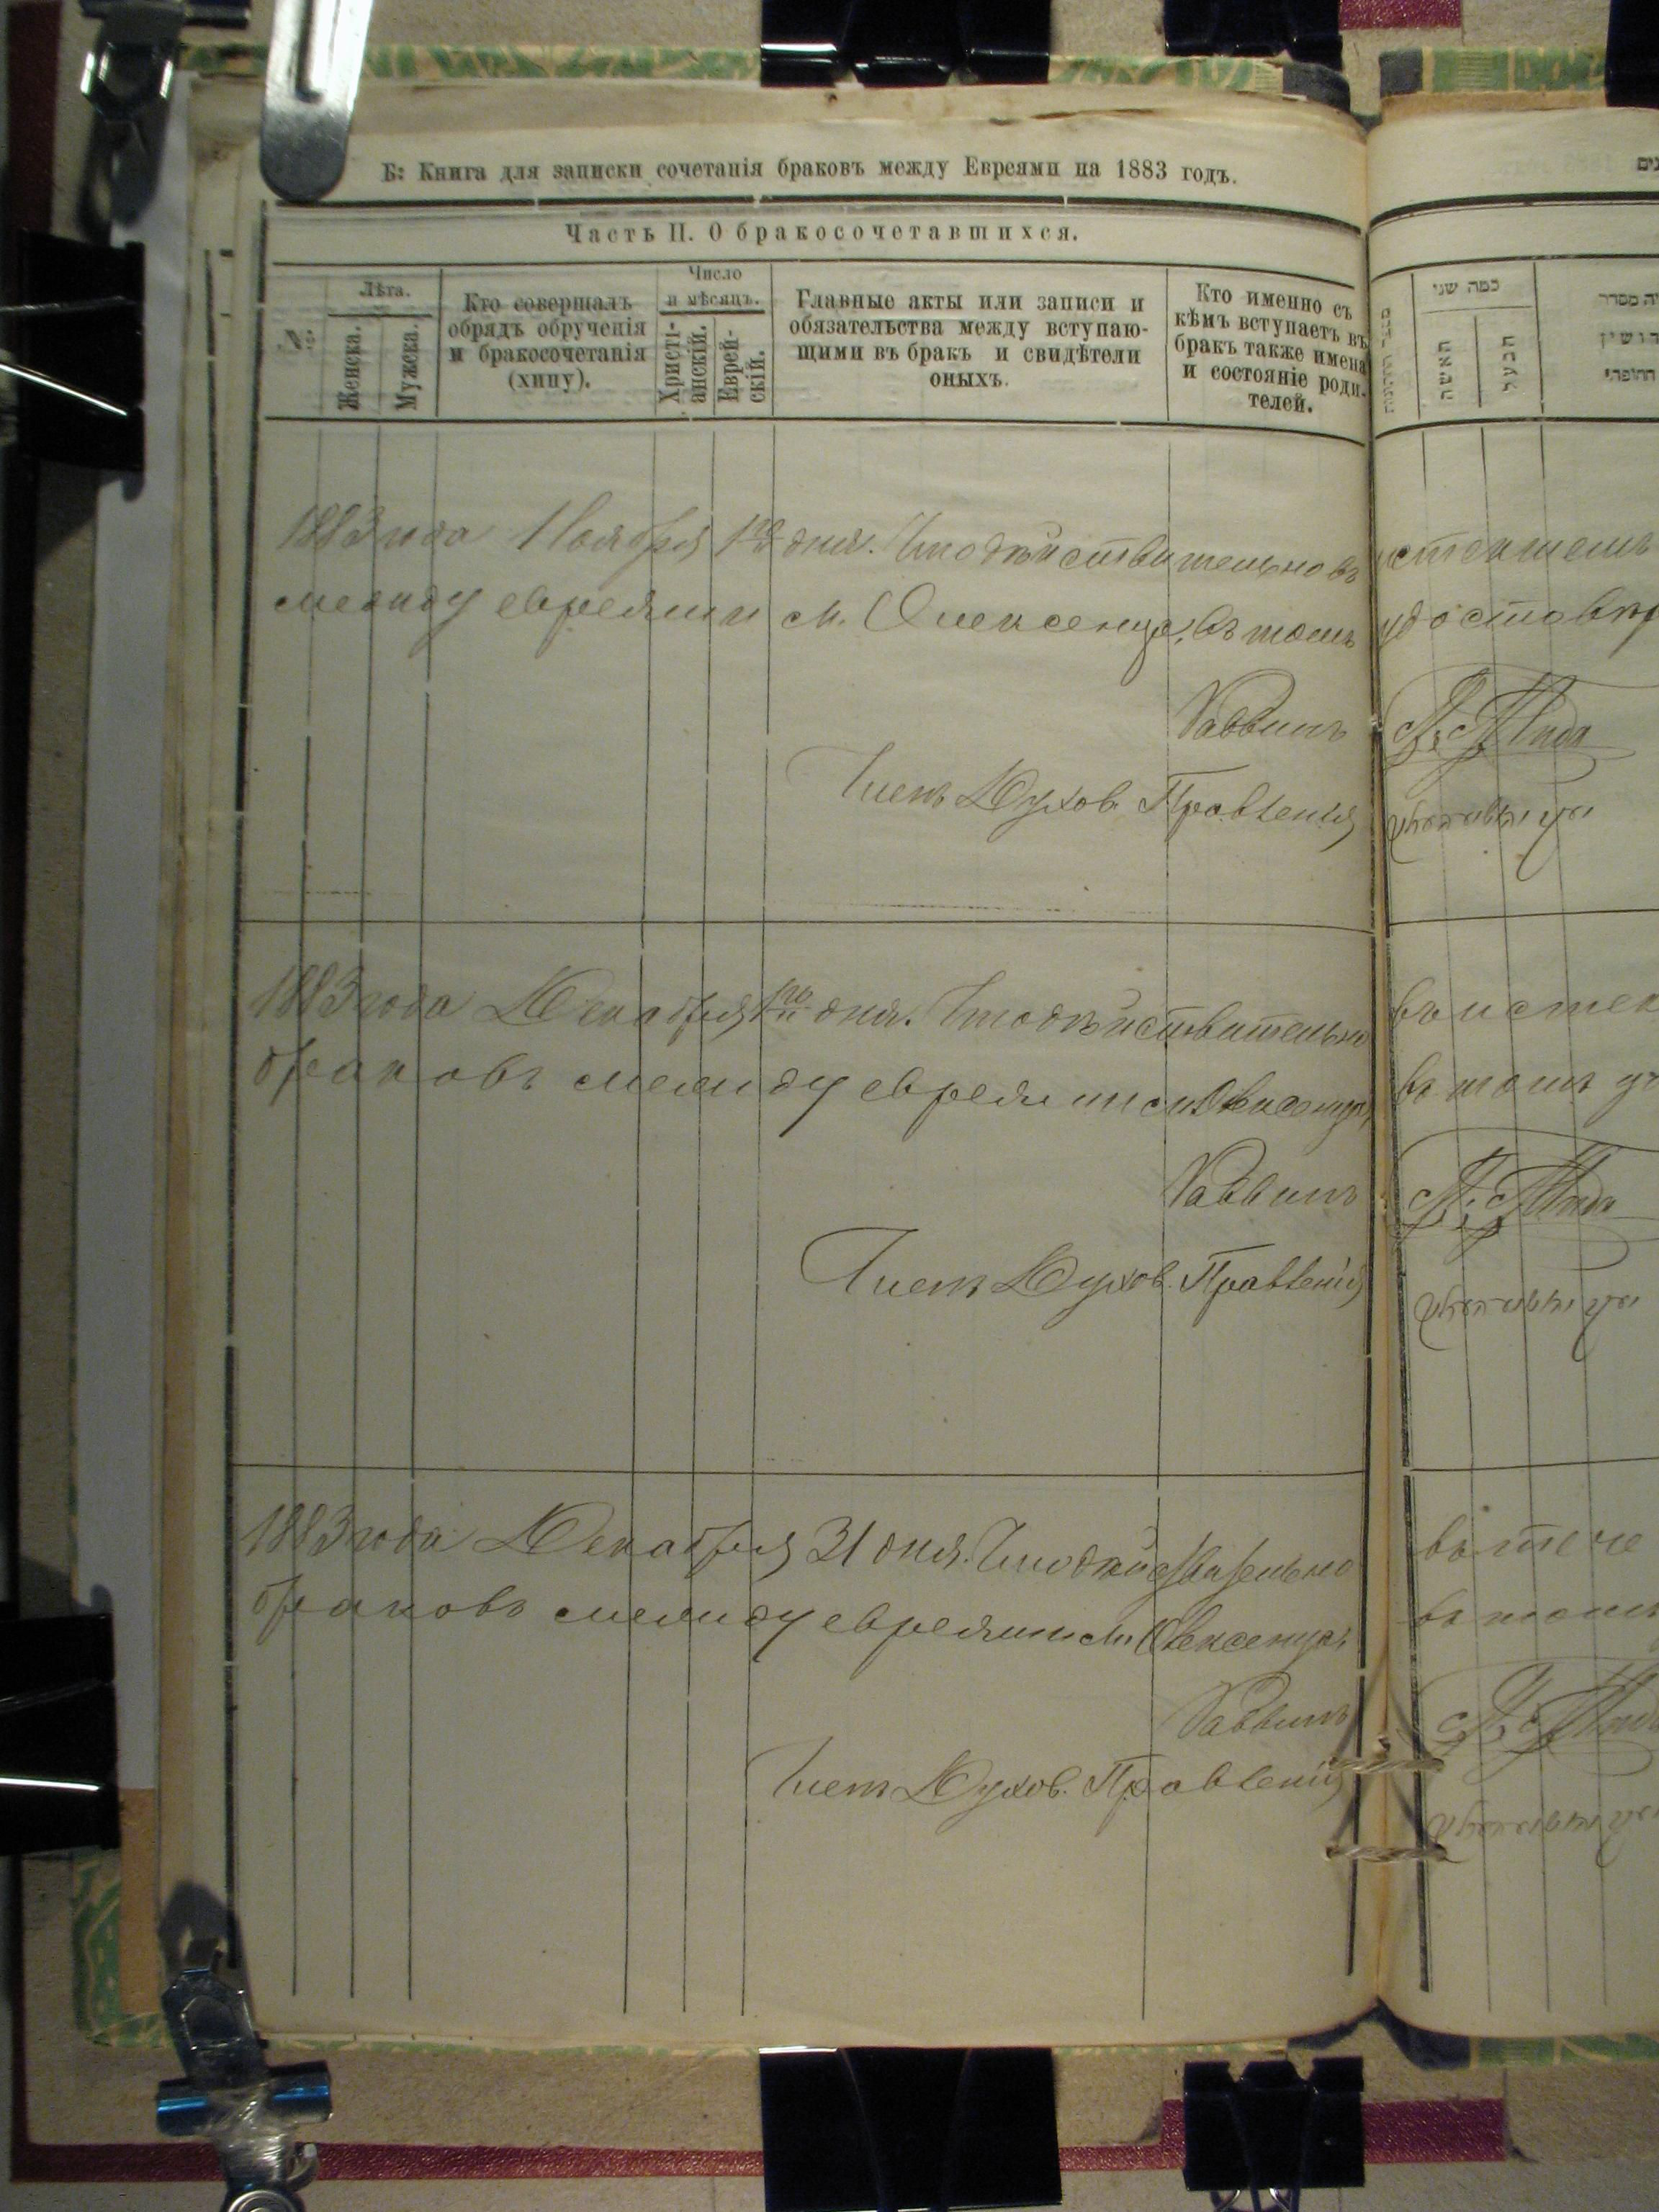 Б: Книга для записки сочетанія браковъ между Евреями на 1883 годъ.
Часть II. О бракосочетавшихся.
№:
Лѣта.
Женска.
Мужска.
Кто совершалъ
обрядъ обрученія
и бракосочетанія
(хипу).
Число
и мѣсяцъ.
Христі-
анскій.
Еврей-
скій.
Главные акты или записи и
обязательства между вступаю-
щими въ бракъ и свидѣтели
оныхъ.
Кто именно съ
кѣмъ вступаетъ въ
бракъ также имена
и состояніе роди-
телей.
כמה שני
האשה
הבעל
1883 года Ноября 1го дня. Что дѣйствительно въ
между евреями м. Олексенца, въ томъ
Раввинъ
Членъ Духов. Правленія
1883 года Декабря 1го дня. Что дѣйствительно въ истек
браковъ между евреями м. Олексенца, въ томъ
Раввинъ
Членъ Духов. Правленія
1883 года Декабря 31 дня. Что дѣйствительно въ тече
браковъ между евреями м. Олексенца, въ томъ
Раввинъ
Членъ Духов. Правленія